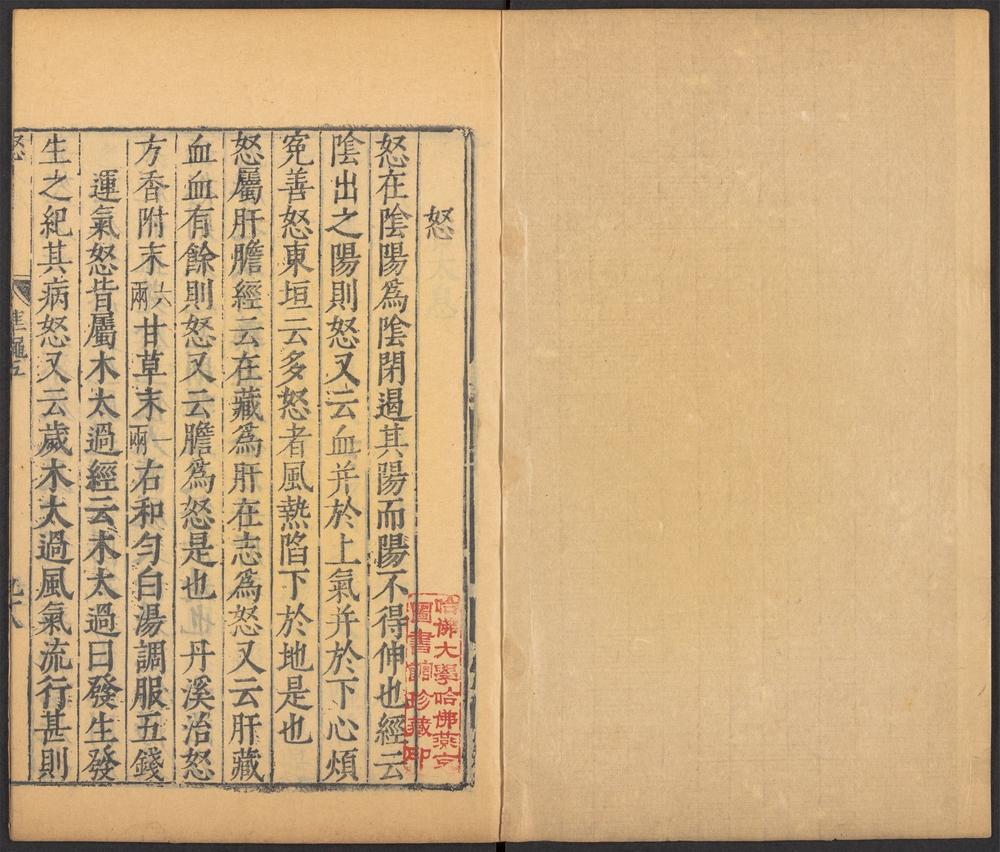 怒
怒在陰陽爲陰閉遏其陽而陽不得伸也經云
陰出之陽則怒又云血并於上氣并於下心煩
寃善怒東垣云多怒者風熱陷下於地是也
怒屬肝膽經云在藏爲肝在志爲怒又云肝藏
血血有餘則怒又云膽爲怒是也　丹溪治怒
方香附末六兩甘草末一兩右和勻白湯調服五錢
運氣怒皆屬木太過經云木太過曰發生發
生之紀其病怒又云歲木太過風氣流行甚則
怒
準繩五
九十八
哈佛大學哈佛燕京
圖書館珍藏印